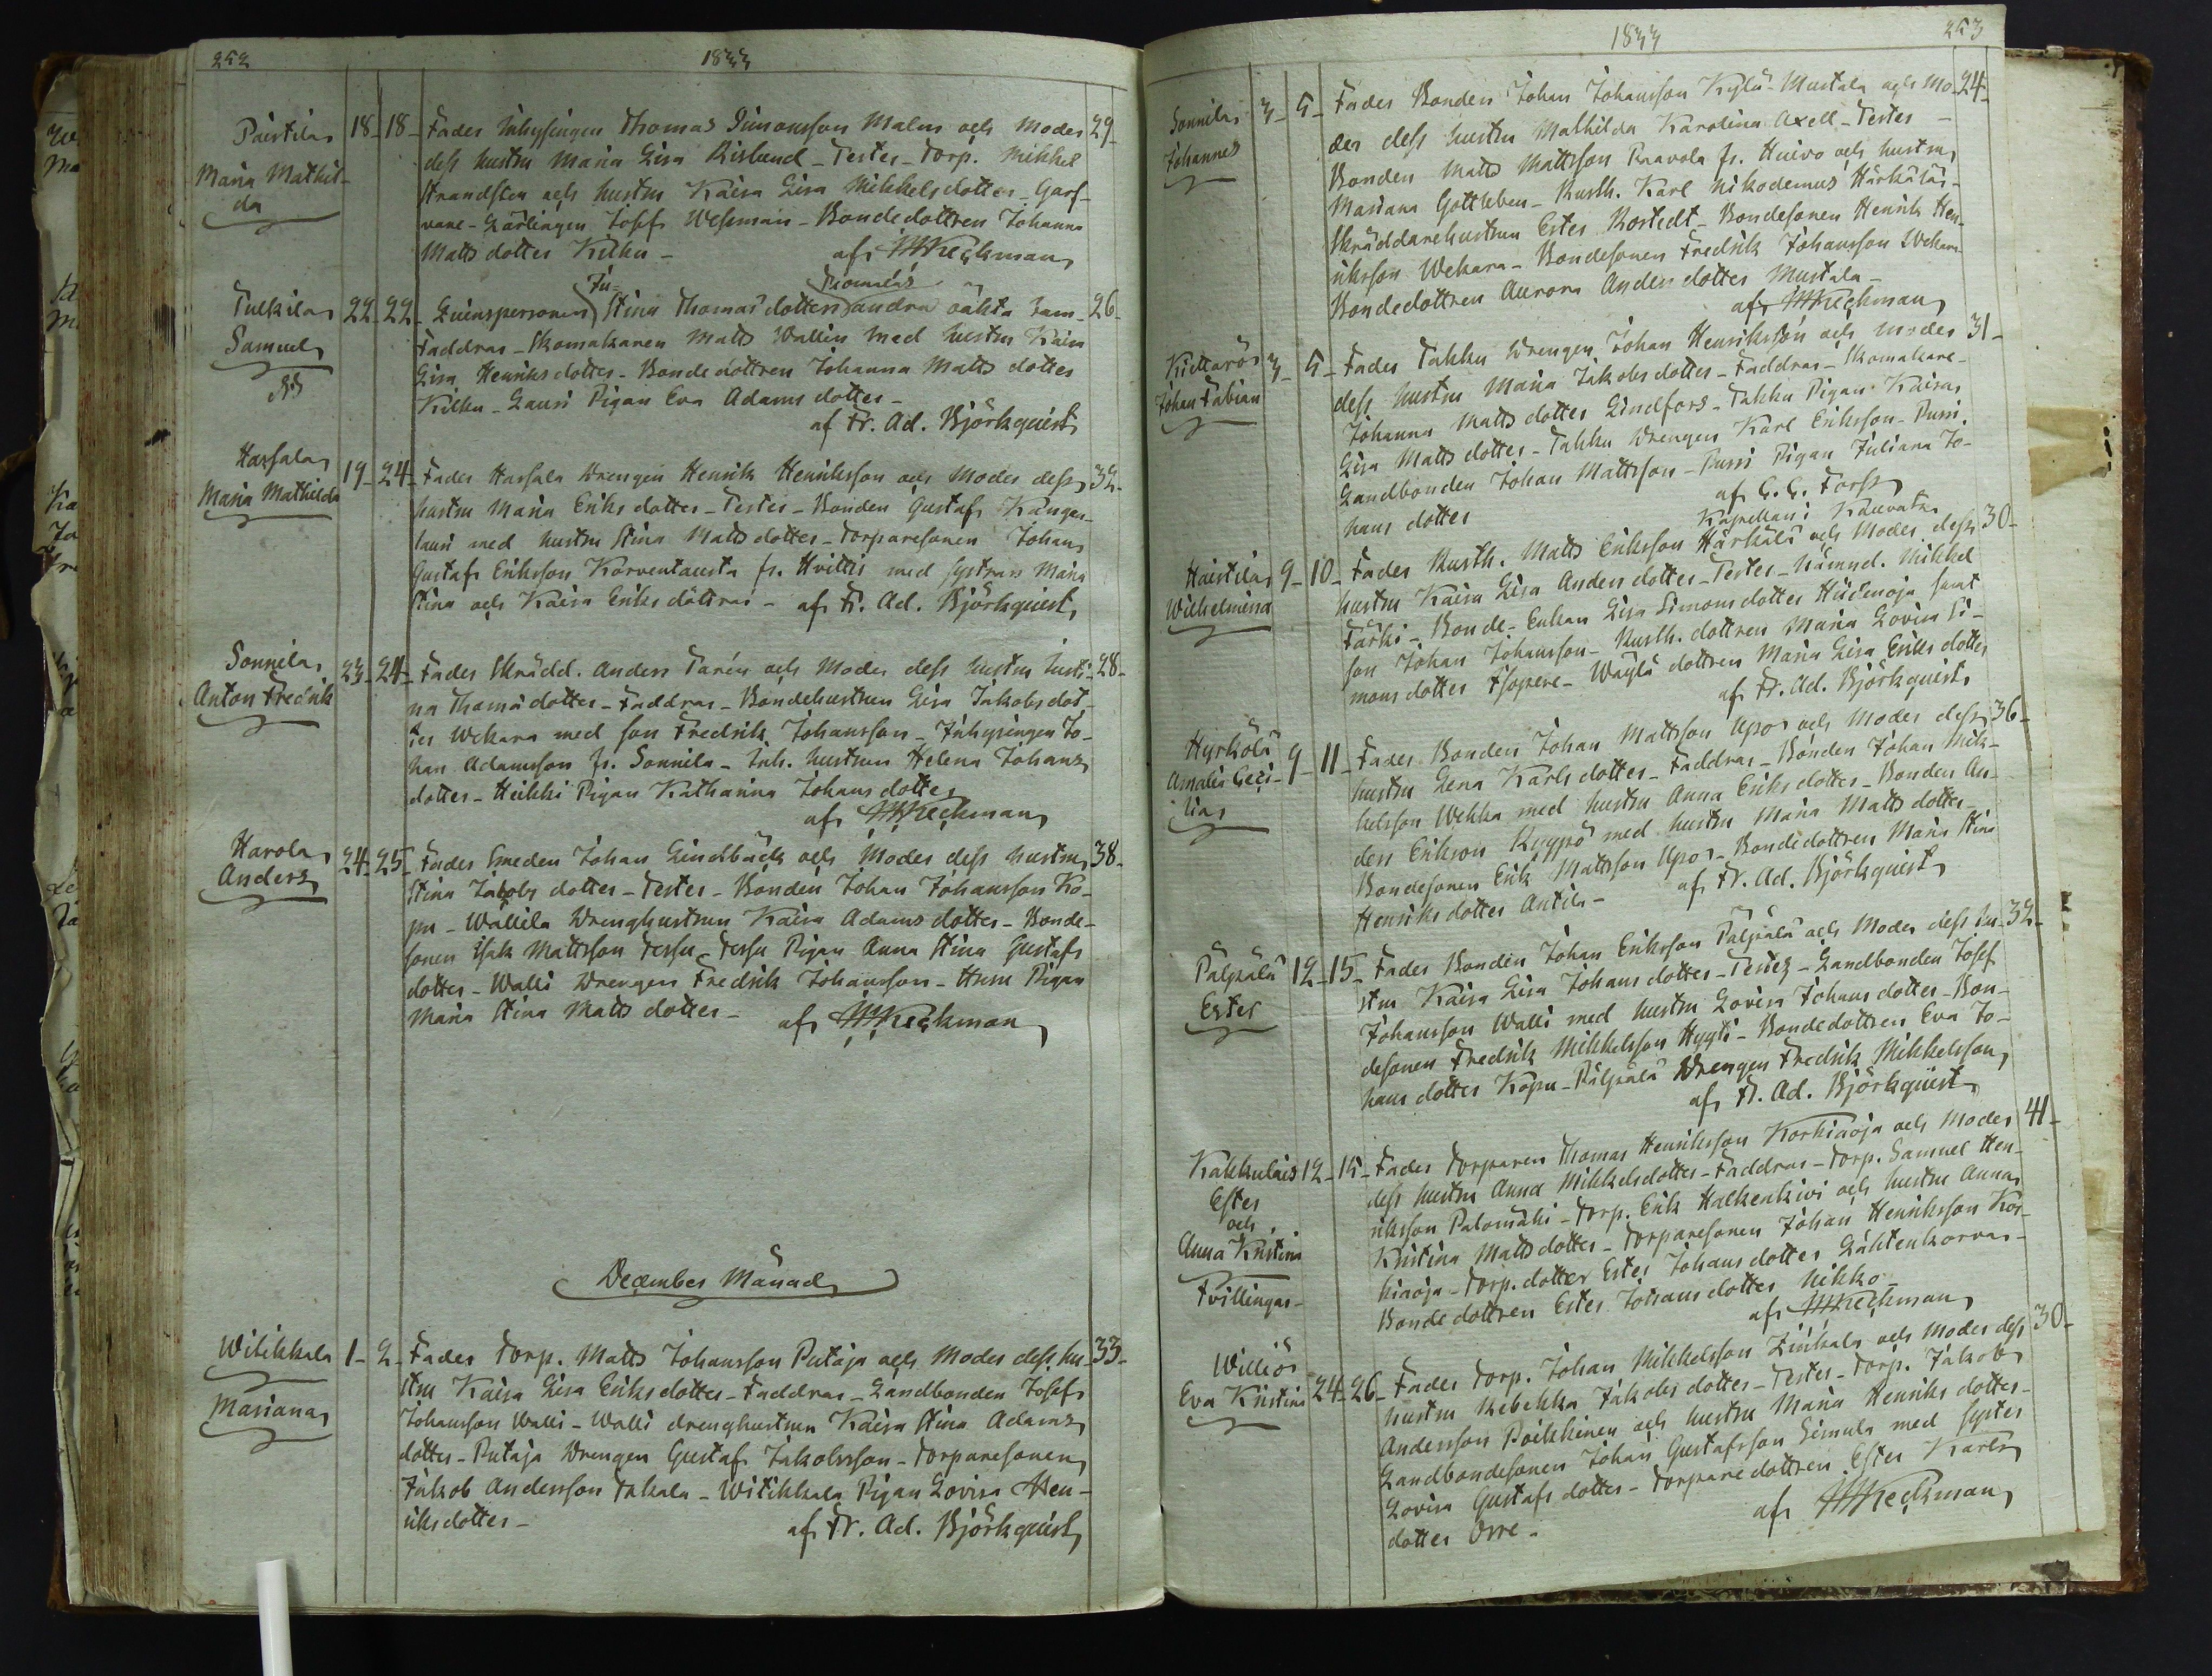 252
1844
Paistila
Maria Mathil-
da
18 - 18 - Fader Inhysingen Thomas Simonsson Malm och Moder 29 -
dess hustru Maria Lisa Risland - Testes - Torp. Mikkel
Strandsten och hustru Kaisa Lisa Mikkelsdotter - Garf-
vare-Lärlingen Josef Weseman - Bondedottren Johanna
Matts dotter Kilku -
af Keckman
Tulkila
Samuel
22 - 22 - Qvinspersonen Stina Thomas dotters andra oäkta 26 -
Faddrar - Skomakaren Matts Wallin med hustru Kaisa
Lisa Henriks dotter - Bondedottren Johanna Matts dotter
Kilku - Lauri Pigan Eva Adams dotter -
af Fr. Ad. Björkquist
Harjala
Maria Mathilda
19 - 24 - Fader Harjala Drengen Henrik Henriksson och Moder dess 32 -
hustru Maria Eriks dotter - Testes - Bonden Gustaf Kangas-
lauri med hustru Stina Matts dotter - Torparesonen Johan
Gustaf Eriksson Korventausta fr. Hvittis med systrar Maria
Stina och Kaisa Eriks döttrar - af Fr. Ad. Björkquist
Sonnila
Anton Fredrik
23 - 24 - Fader Skrädd. Anders Tarén och Moder dess hustru Justi- 28 -
na Thomä dotter - Faddrar - Bondehustrun Lisa Jakobs dot-
ter Wekara med son Fredrik Johansson - Inhysingen Jo-
han Adamsson fr. Sonnila - Inh. hustrun Helena Johans
dotter - Heikki Pigan Katharina Johans dotter
af Keckman
Harola
Anders
24 - 25 - Fader Smeden Johan Lindbäck och Moder dess hustru 38 -
Stina Jakobs dotter - Testes - Bonden Johan Johansson Ko-
pu - Wallila Drenghustrun Kaisa Adams dotter - Bonde-
sonen Isak Mattsson Jessu - Jessu Pigan Anna Stina Gustafs
dotter - Walli Drengen Fredrik Johansson - Hum Pigan
Maria Stina Matts dotter -
af Keckman
December Månad
Witikkala
Mariana
1 - 2 - Fader Torp. Matts Johansson Putaja och Moder dess hu- 33 -
stru Kaisa Lisa Eriks dotter - Faddrar - Landbonden Josef
Johansson Walli - Walli drenghustrun Kaisa Stina Adams
dotter - Putaja Drengen Gustaf Jakobsson - Torparesonen
Jakob Andersson Takala - Witikkala Pigan Lovisa Hen-
riksdotter -
af Fr. Ad. Björkquist
1844
253
Sonnila
Johannes
3 - 5 - Fader Bonden Johan Johansson Kylä-Mustala och Mo- 24 -
der dess hustru Mathilda Karolina Axell - Testes -
Bonden Matts Mattsson Paavola fr. Huivo och hustru
Mariana Gottleben - Rusth. Karl Nikodemus Härkälä -
Skräddarehustrun Ester Rostedt - Bondesonen Henrik Hen-
riksson Wekara - Bondesonen Fredrik Johansson Wekara
Bondedottren Aurora Anders dotter Mustala -
af Keckman
Kiettarö
Johan Fabian
3 - 5 - Fader Takku Drengen Johan Henriksson och Moder 31 -
dess hustru Maria Jakobs dotter - Faddrar - Skomakare-
Johanna Matts dotter Lindfors - Takku Pigan Kaisa
Lisa Matts dotter - Takku Drengen Karl Eriksson - Purri
Landbonden Johan Mattsson - Purri Pigan Juliana Jo-
hans dotter
af G. G. Forss
Kapellan i Kauvatsa
Haistila
Wilhelmina
9 - 10 - Fader Rusth. Matts Eriksson Härkälä och Moder dess 30 -
hustru Kaisa Lisa Anders dotter - Testes - Nämnd. Mikkel
Färki - Bonde-Enkan Lisa Simons dotter Hiidenoja samt
son Johan Johansson - Rusth. dottren Maria Lovisa Si-
mons dotter Isopere - Wäylä dottren Maria Lisa Eriks dotter
af Fr. Ad. Björkquist
Hyrkölä
Amalia Ceci-
lia
9 - 11 - Fader Bonden Johan Mattsson Upor och Moder dess 36 -
hustru Lena Karls dotter - Faddrar - Bonden Johan Mik-
kelsson Wekka med hustru Anna Eriks dotter - Bonden An-
ders Erikson Ryyppö med hustru Maria Matts dotter -
Bondesonen Erik Mattsson Upor - Bondedottren Maria Stina
Henriks dotter Antila -
af Fr. Ad. Björkquist
Pälpälä
Ester
12 - 15 - Fader Bonden Johan Eriksson Pälpälä och Moder dess hu- 32 -
stru Kaisa Lisa Johans dotter - Testes - Landbonden Josef
Johansson Walli med hustru Lovisa Johans dotter - Bon-
desonen Fredrik Mikkelsson Hyyti - Bondedottren Eva Jo-
hans dotter Kopu - Pälpälä Drengen Fredrik Mikkelsson
af Fr. Ad. Björkquist
Kakkulais
Ester
och
Anna Kristina
Tvillingar -
12 - 15 - Fader Torparen Thomas Henriksson Korkiaoja och Moder 41 -
dess hustru Anna Mikkelsdotter - Faddrar - Torp. Samuel Hen-
riksson Palomäki - Torp. Erik Halkenkivi och hustru Anna
Kristina Mattsdotter - Torparesonen Johan Henriksson Kor-
kiaoja - Torp. dotter Ester Johans dotter Lähtenkorva -
Bondedottren Ester Johans dotter Nikko -
af Keckman
Williö
Eva Kristina
24 - 26 - Fader Torp. Johan Mikkelsson Zinkala och Moder dess 30 -
hustru Rebekka Jakobs dotter - Testes - Torp. Jakob
Andersson Poikkinen och hustru Maria Henriks dotter -
Landbondesonen Johan Gustafsson Simula med syster
Lovisa Gustafs dotter - Torparedottren Ester Karls
dotter Orre -
af Keckman